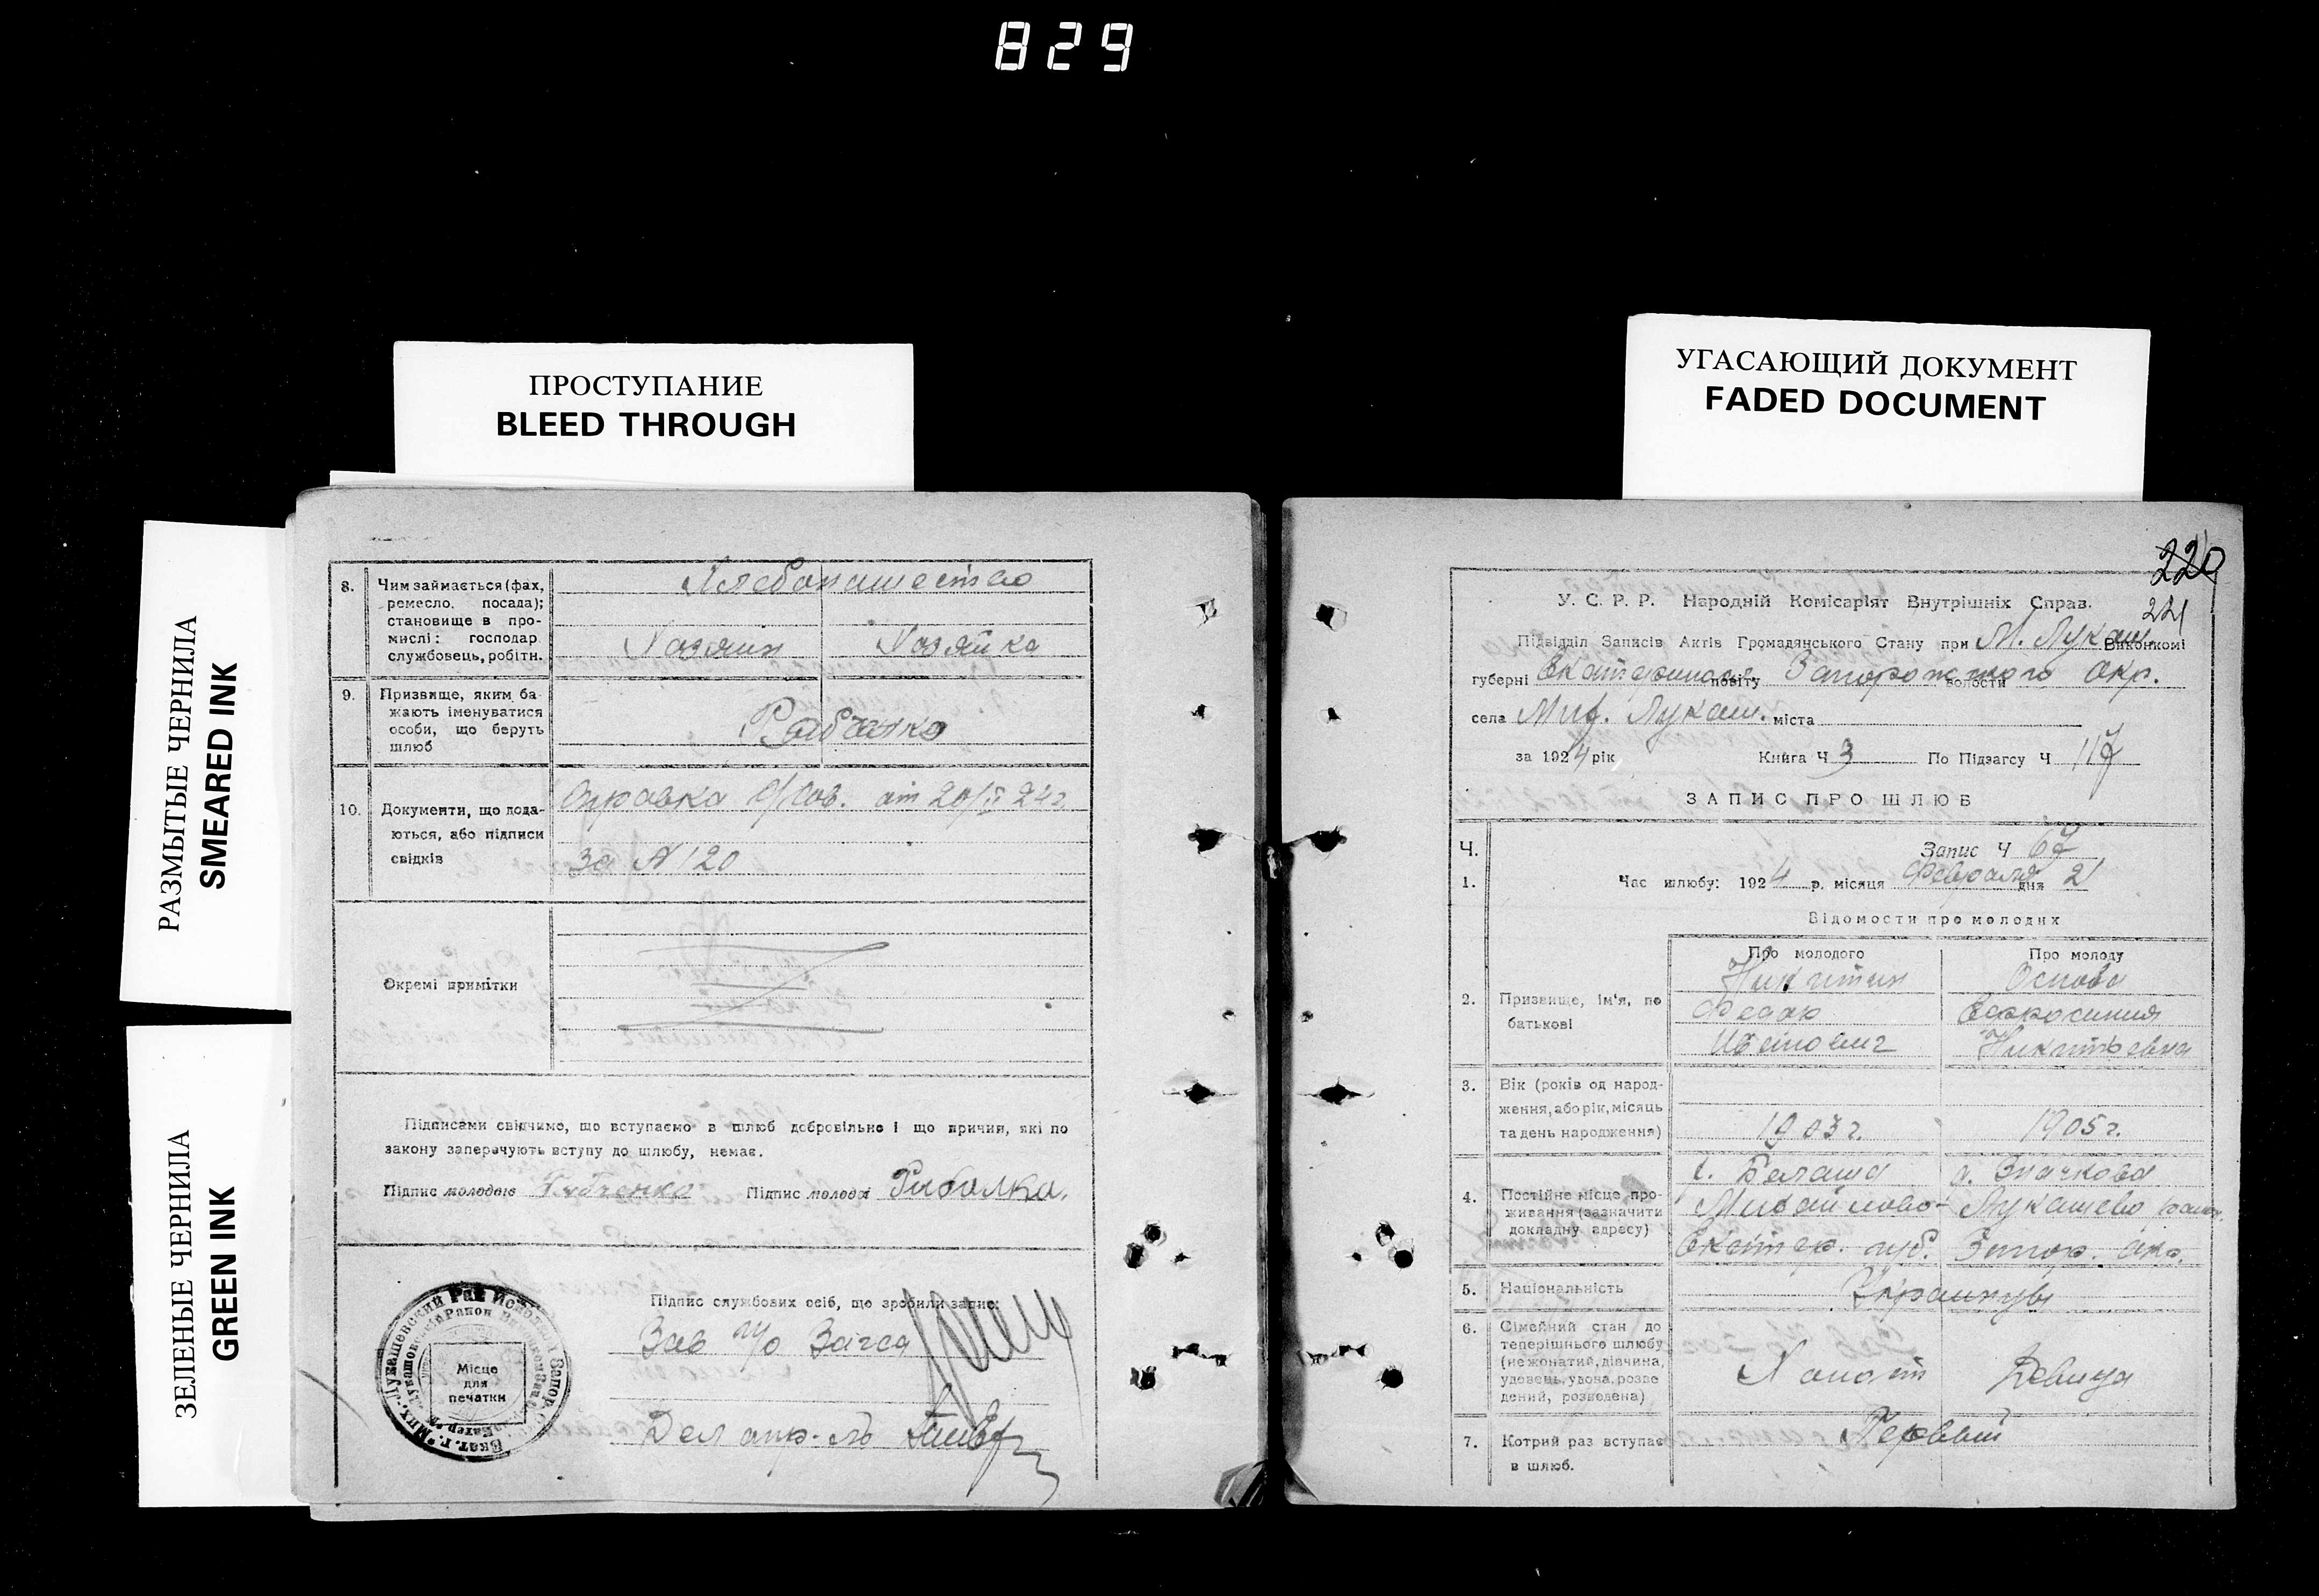 829
ПРОСТУПАНИЕ
BLEED THROUGH
УГАСАЮЩИЙ ДОКУМЕНТ
FADED DOCUMENT
РАЗМЫТЫЕ ЧЕРНИЛА
SMEARED INK
ЗЕЛЕНЫЕ ЧЕРНИЛА
GREEN INK
8. Чим займається (фах, ремесло, посада); становище в промислі: господар службовець, робітн.
Хлебопашество
Хозяин Хозяйка
9. Призвище, яким бажають іменуватися особи, що беруть шлюб
Рябченко
10. Документи, що подаються, або підписи свідків
Справка С/Сов. от 20/II 24 г.
за N 120
Окремі примітки
Підписами свідчимо, що вступаємо в шлюб добровільно і що причин, які по
закону заперечують вступу до шлюбу, немає.
Підпис молодого Рябченко Підпис молодої Рибалка.
Підпис службових осіб, що зробили запис:
Зав п/о Загса
Місце
для
печатки
220
221
У. С. Р. Р. Народній Комісаріят Внутрішніх Справ.
Підвідділ Записів Актів Громадянського Стану при М. Лукаш. Виконкомі
губерні Екатериносл. повіту Запорожского волости Окр.
села Мих. Лукаш. міста
за 1924 рік Книга Ч 3 По Підзагсу Ч 117
ЗАПИС ПРО ШЛЮБ
Ч. Запис Ч 67
1. Час шлюбу: 1924 р. місяця Февраля дня 21
Відомости про молодих
Про молодого Про молоду
2. Призвище, ім'я, по батькові
Никитин
Федор Евфросиния
Никитьевна
3. Вік (років од народження, або рік, місяць та день народження)
1903 г. 1905 г.
4. Постійне місце проживання (зазначити докладну адресу)
Михайлово- Лукашево
Екатер. губ. Запор. окр.
5. Національність
Украинцы
6. Сімейний стан до теперішнього шлюбу (нежонатий, дівчина, удовець, удова, розведений, розведена)
Холост Девица
7. Котрий раз вступає в шлюб.
Первый